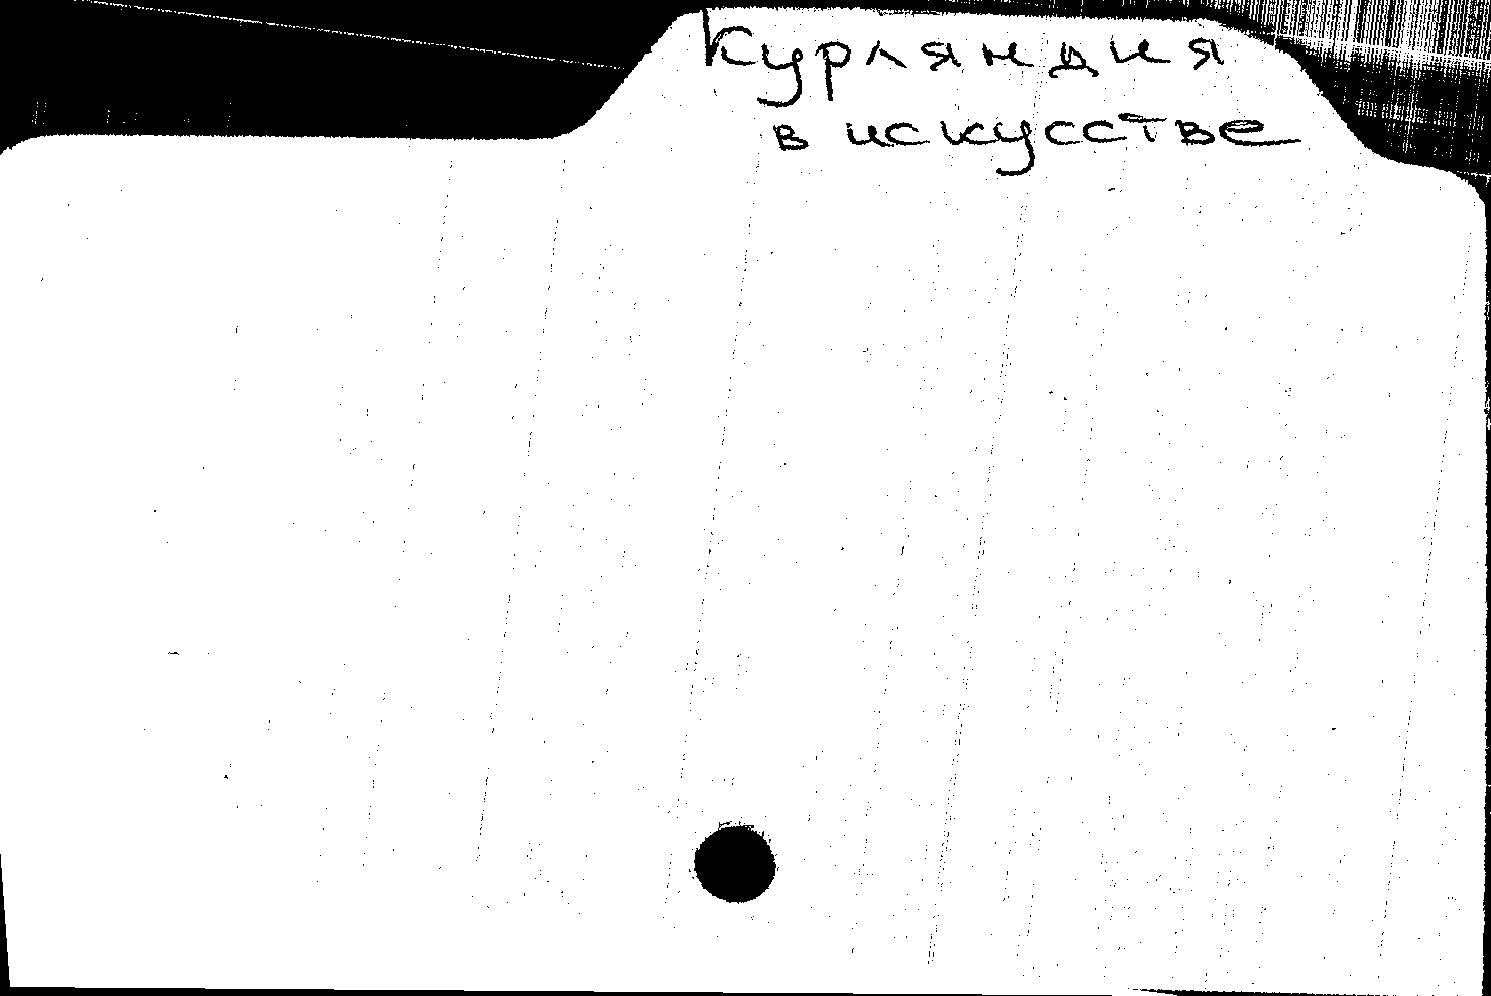 Курляндия
в искусстве